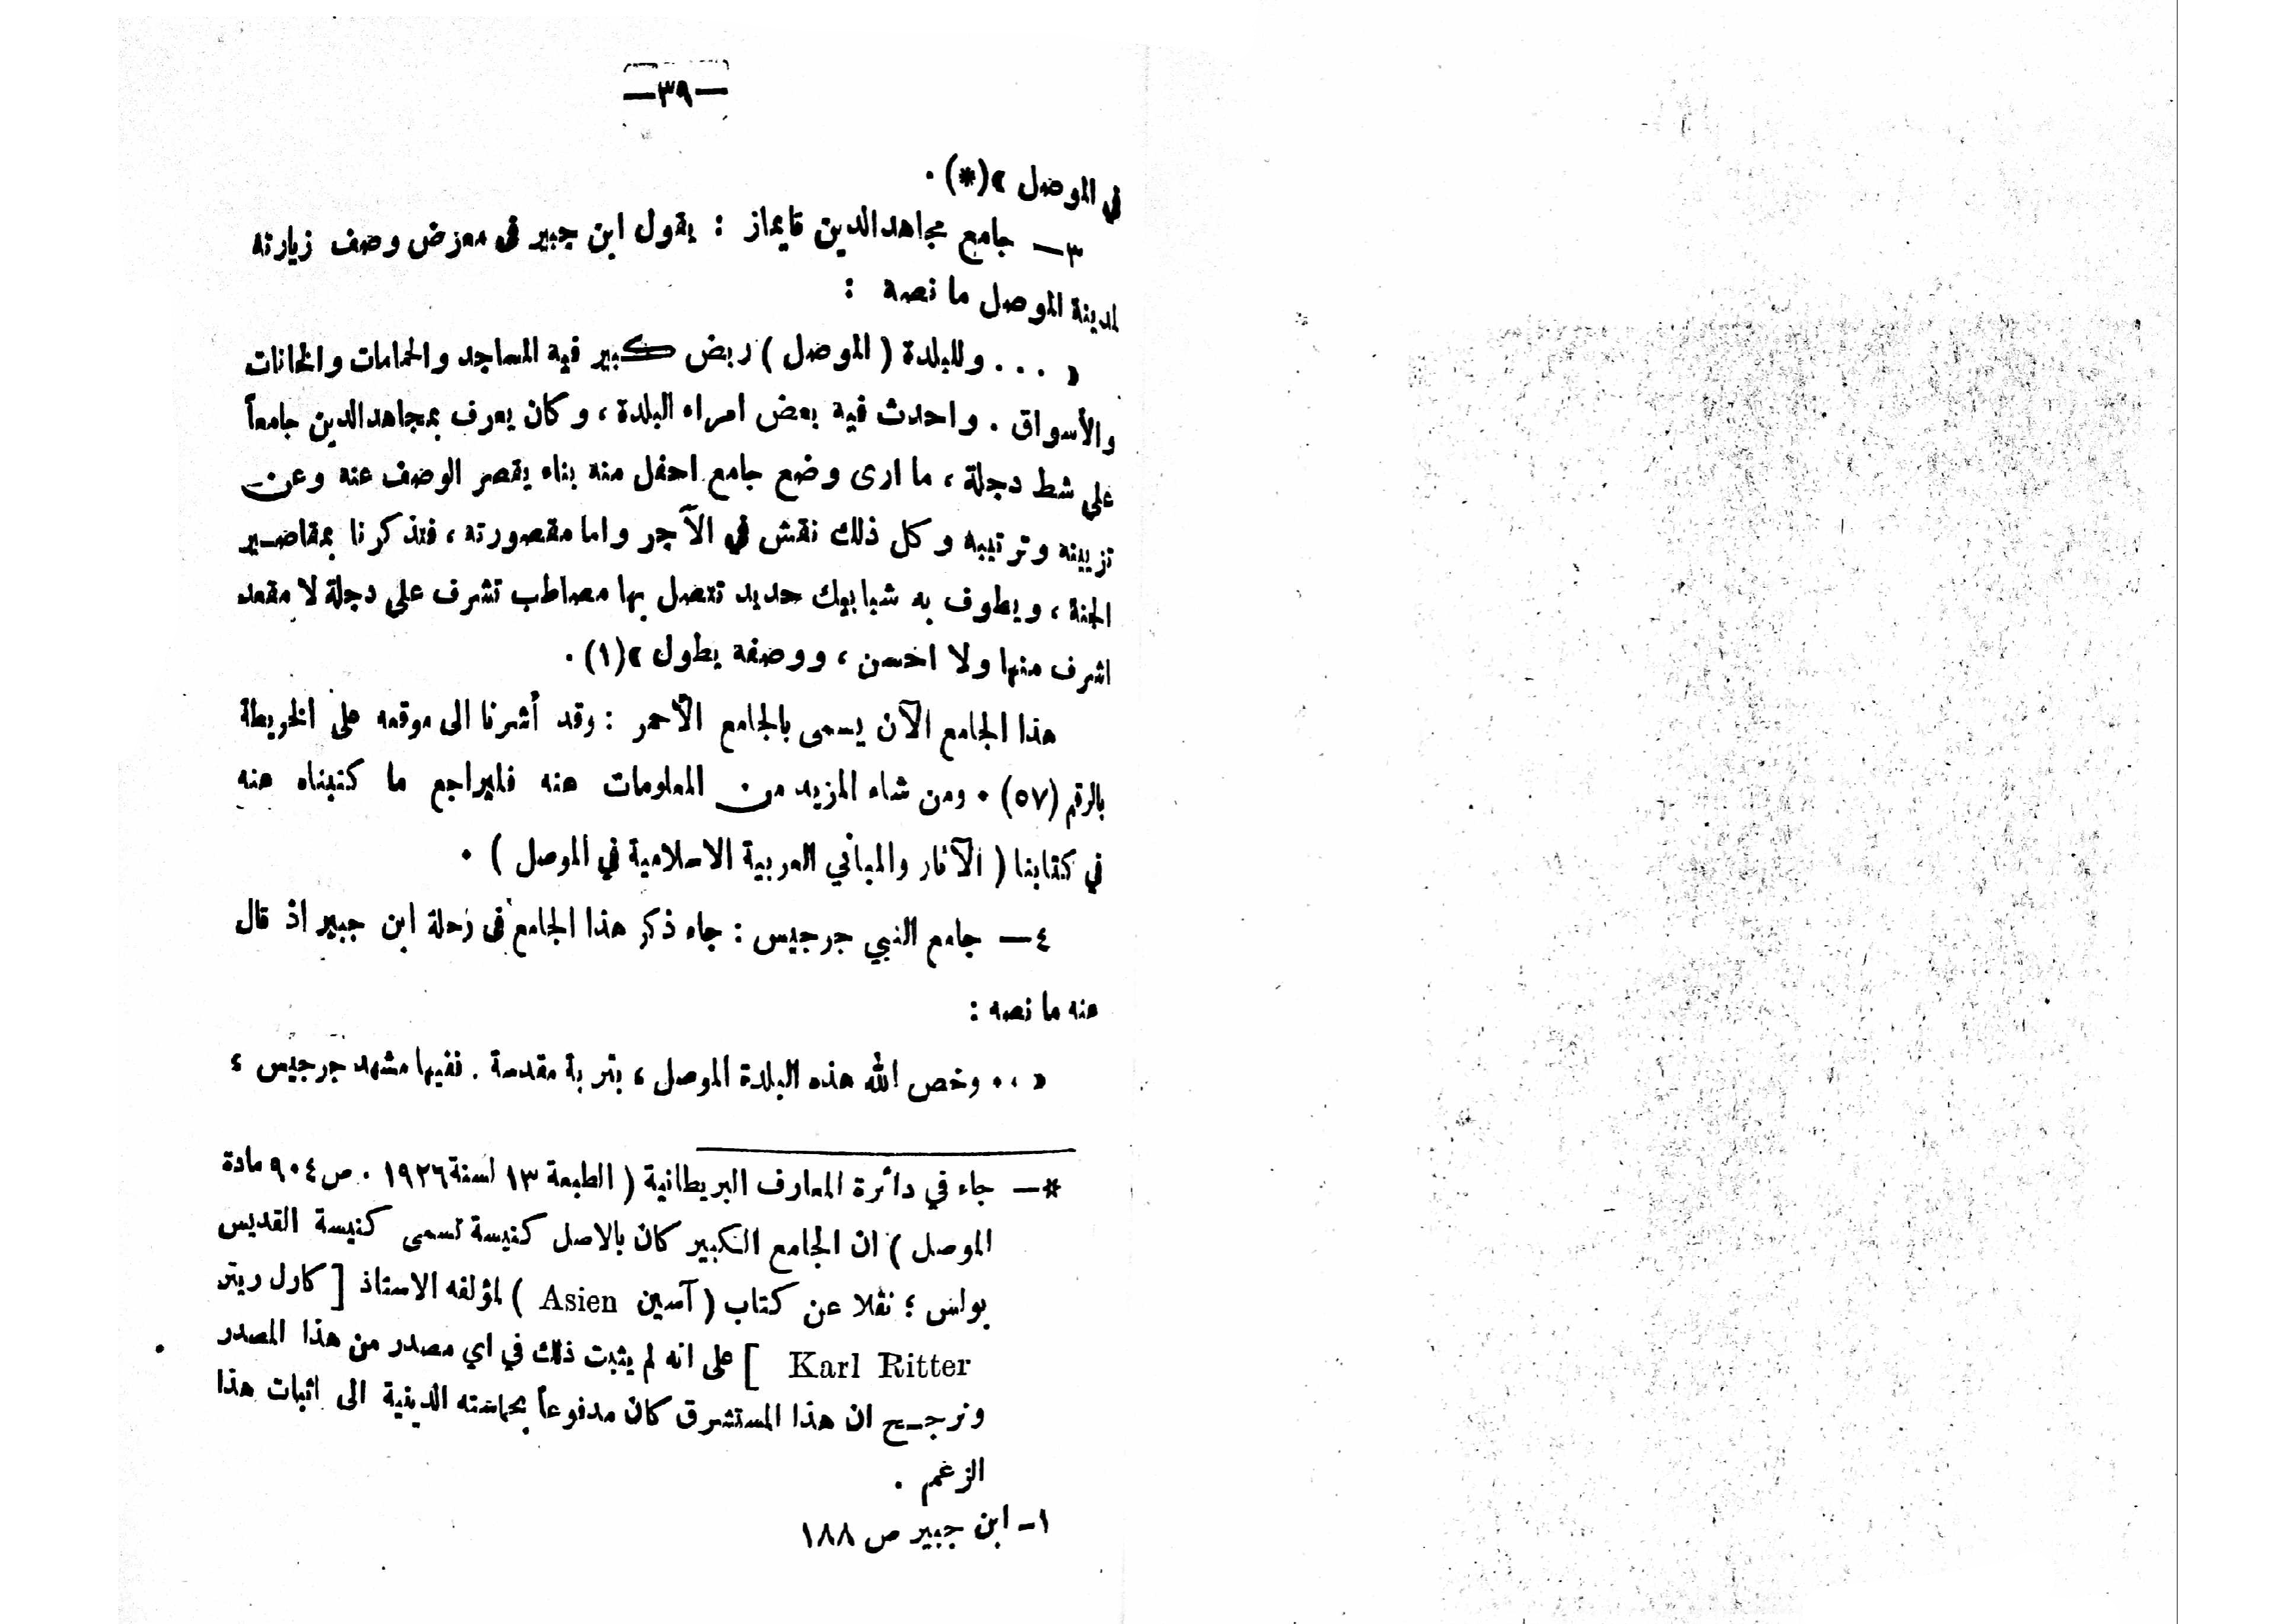 —٣٩—
في الموصل »(*) .
٣— جامع مجاهد الدين قايماز : يقول ابن جبير في معرض وصف زيارته
لمدينة الموصل ما نصة :
« . . . وللبلدة ( الموصل ) ربض كبير فيه المساجد والحمامات والخانات
والأسواق . واحدث فيه بعض امراء البلدة ، وكان يعرف بمجاهد الدين جامعاً
على شط دجلة ، ما ارى وضع جامع احفل منه بناء يقصر الوصف عنه وعن
تزيينه وترتيبه وكل ذلك نقش في الآجر واما مقصورته ، فتذكرنا بمقاصير
الجنة ، ويطوف به شبابيك حديد تتصل بها مصاطب تشرف على دجلة لا مقعد
اشرف منها ولا احسن ، ووصفة يطول »(١) .
هذا الجامع الآن يسمى بالجامع الأحمر : وقد أشرنا الى موقعه على الخريطة
بالرقم (٥٧) . ومن شاء المزيد من المعلومات عنه فليراجع ما كتبناه عنه
في كتابنا ( الآثار والمباني العربية الاسلامية في الموصل ) .
٤— جامع النبي جرجيس : جاء ذكر هذا الجامع في رحلة ابن جبير اذ قال
عنه ما نصه :
« . . وخص الله هذه البلدة الموصل ، بتربة مقدسة . ففيها مشهد جرجيس ،
*— جاء في دائرة المعارف البريطانية ( الطبعة ١٣ لسنة ١٩٢٦ . ص ٩٠٤ مادة
الموصل ) ان الجامع الكبير كان بالاصل كنيسة تسمى كنيسة القديس
بولس ؛ نقلا عن كتاب ( آسين Asien ) لمؤلفه الاستاذ [ كارل ريتر
Karl Ritter ] على انه لم يثبت ذلك في اي مصدر من هذا المصدر
ونرجح ان هذا المستشرق كان مدفوعاً بحماسته الدينية الى اثبات هذا
الزعم .
١- ابن جبير ص ١٨٨